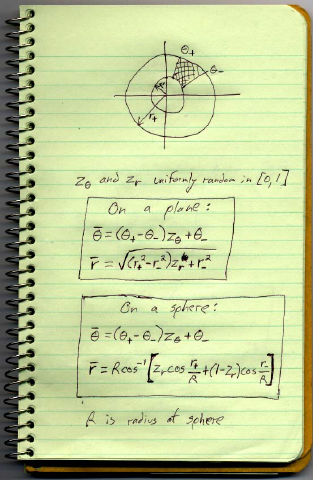 θ₊
θ₋
r₋
r₊
z_θ and z_r uniformly random in [0,1]
On a plane:
θ̄ = (θ₊-θ₋)z_θ+θ₋
r̄ = √((r₊²-r₋²)z_r+r₋²)
On a sphere:
θ̄ = (θ₊-θ₋)z_θ+θ₋
r̄ = R cos⁻¹[z_r cos r₊/R +(1-z_r)cos r₋/R]
R is radius of sphere